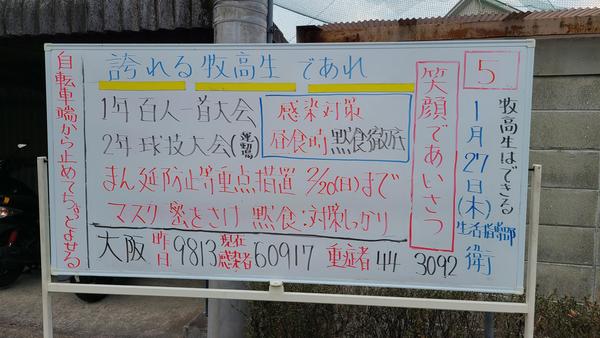 5
牧高生はできる
1月27日(木)
生活指導部
衛
笑顔であいさつ
誇れる牧高生であれ
1年 百人一首大会
2年 球技大会(運動場)
感染対策
昼食時 黙食徹底
まん延防止等重点措置 2/20(日)まで
マスク 密をさけ 黙食:対策しっかり
大阪 昨日 9813 現在感染者 60917 重症者 44 3092
自転車端から止めてちょっとよせる